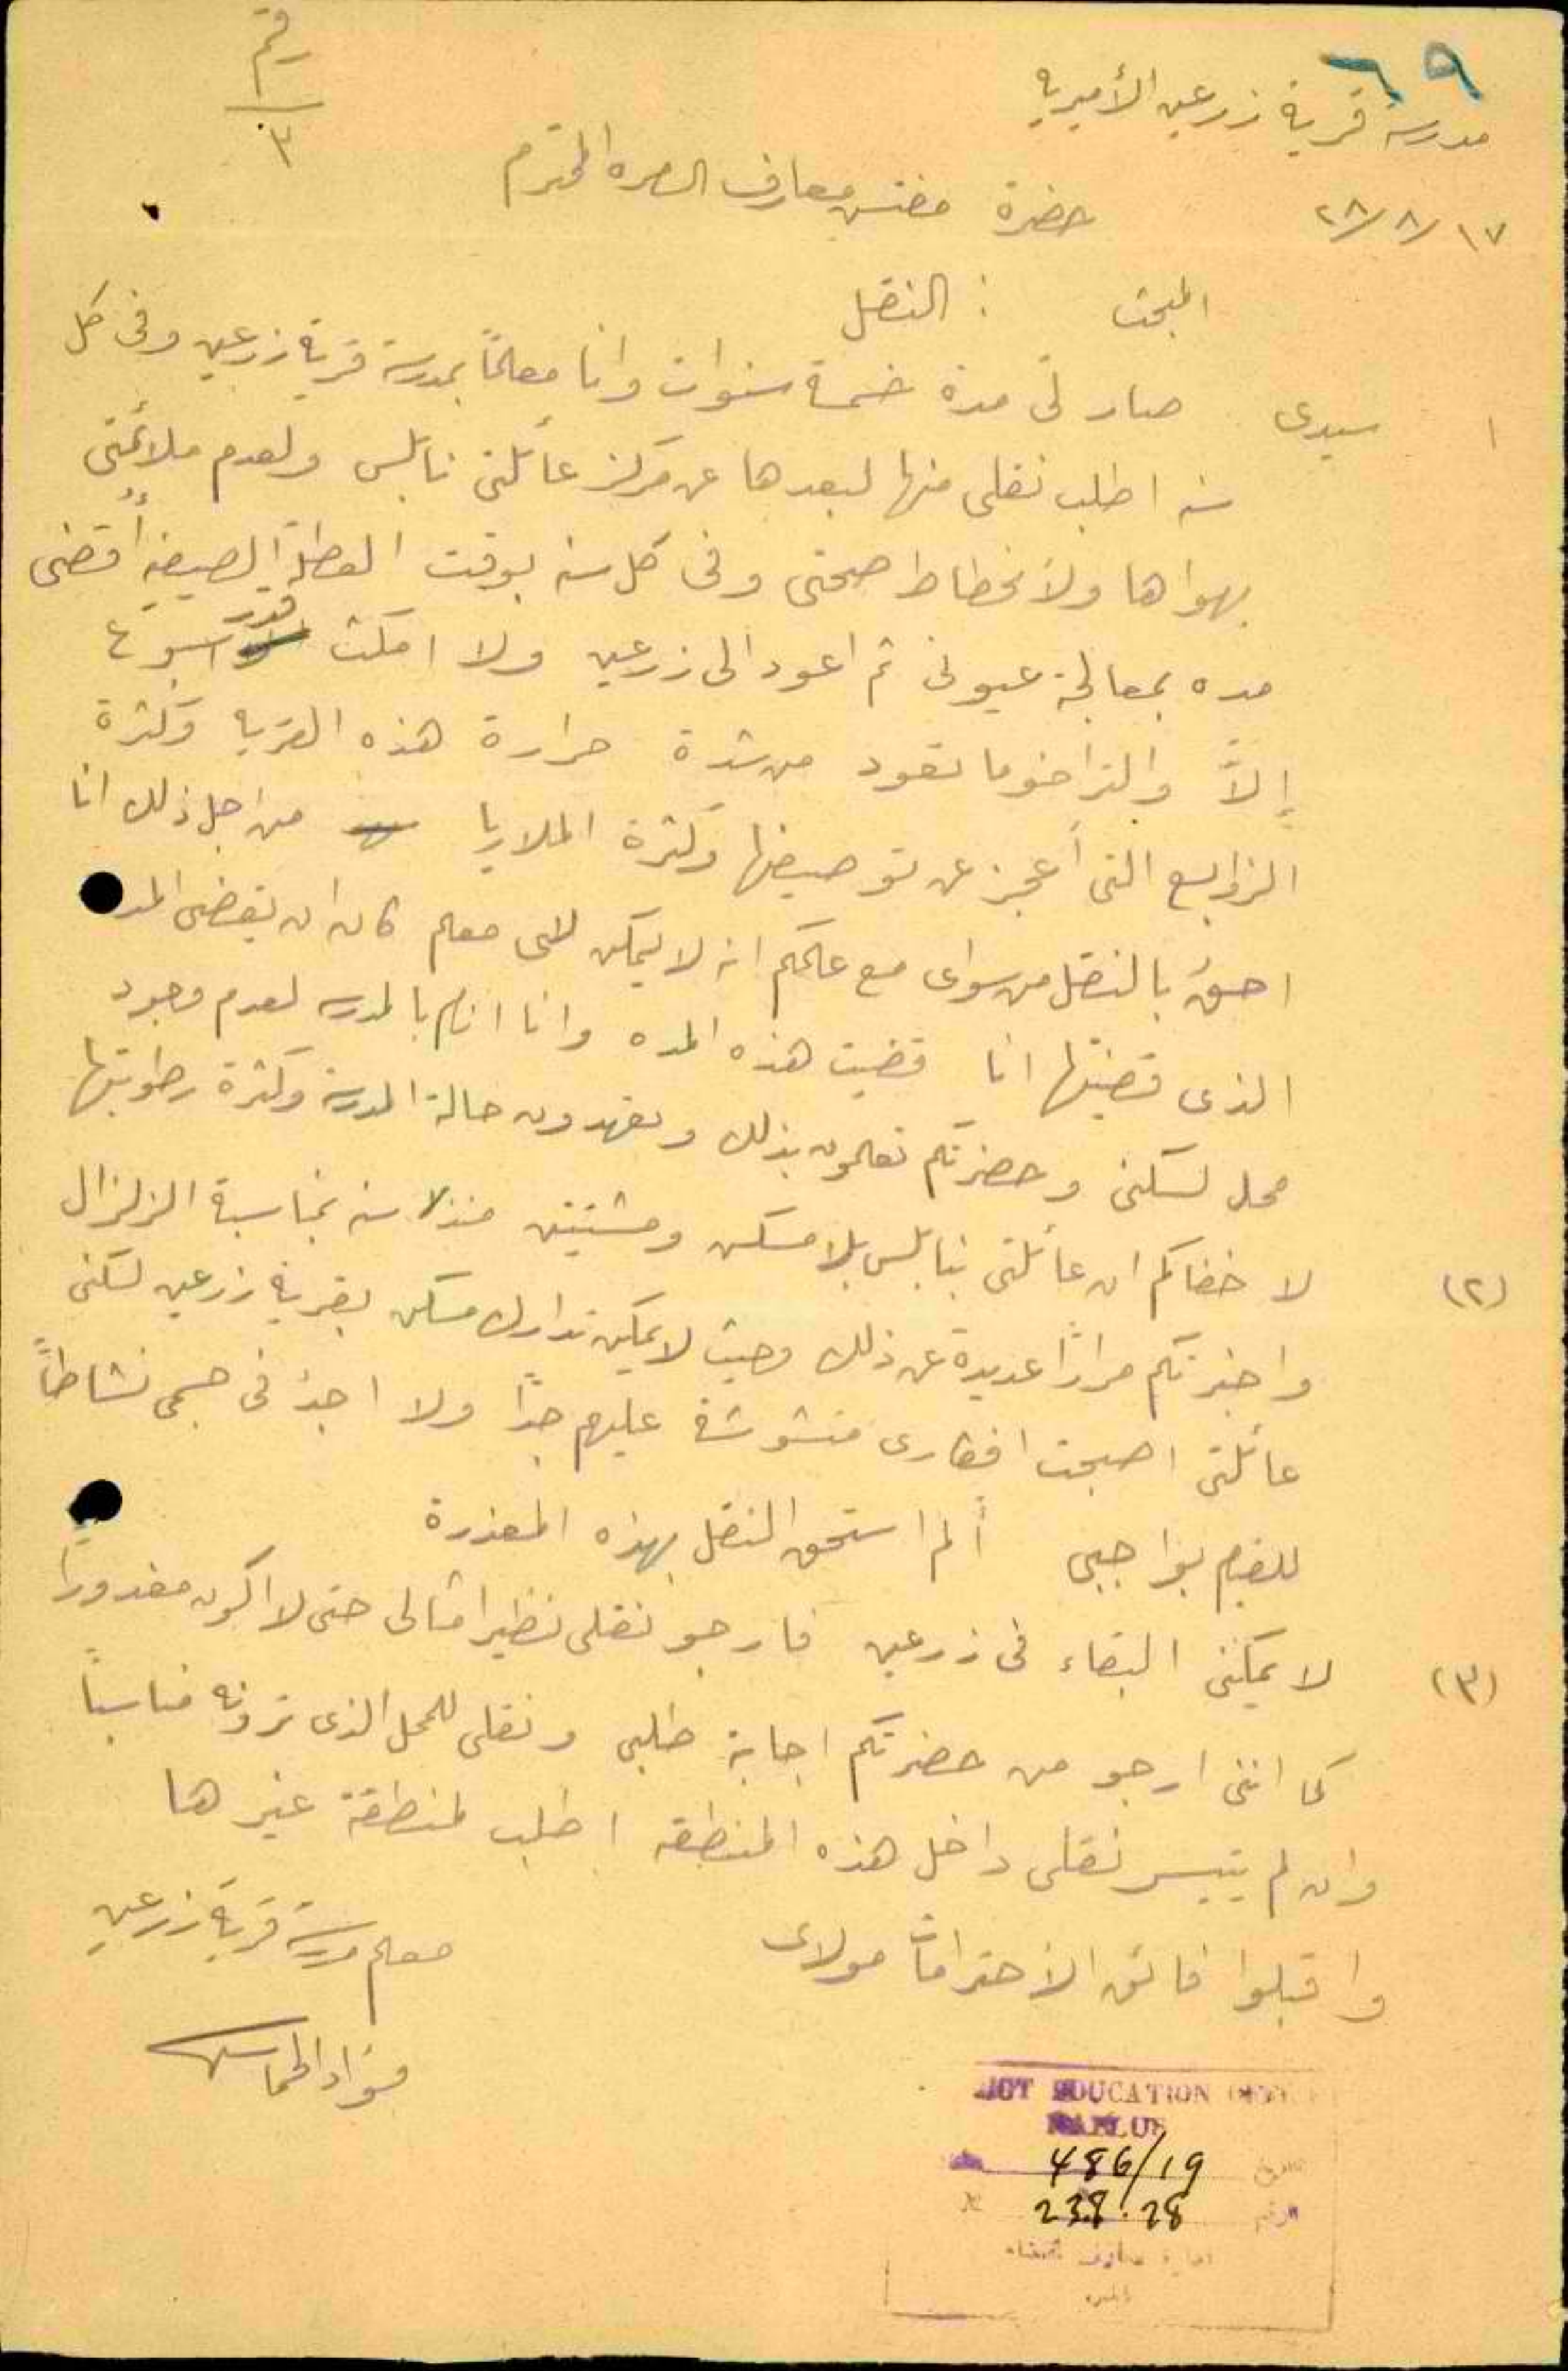 ٦٩
رقم
٣
مدرسة قرية زرعين الأميرية
١٧/٨/٢٨
حضرة مفتش معارف السامره المحترم
المبحث : النقل
١ سيدي صار لي مدة خمسة سنوات وانا معلماً بمدرسة قرية زرعين وفي كل
سنه اطلب نقلي منها لبعدها عن مركز عائلتي نابلس ولعدم ملائمتي
بهواها ولأنحطاط صحتي وفي كل سنه بوقت العطلة الصيفيه أقضي
مده بمعالجة عيوني ثم اعود الى زرعين ولا امكث قدر اسبوع
إلاَّ والتراخوما تعود من شدة حرارة هذه القريه وكثرة
الزوابع التي أعجز عن توصيفها وكثرة الملاريا من اجل ذلك انا
احقُ بالنقل من سواي مع علمكم انه لا يمكن لاي معلم كان ان يقضي المده
الذي قضيتها انا قضيت هذه المده وانا انام بالمدرسه لعدم وجود
محل لسكني وحضرتكم تعلمون بذلك وتعهدون حالة المدرسة وكثرة رطوبتها
(٢) لا خفاكم ان عائلتي بنابلس بلا مسكن ومشتتين منذ سنه بمناسبة الزلزال
واخبرتكم مراراً عديدة عن ذلك وحيث لا يمكن تدارك مسكن بقرية زرعين لسكنى
عائلتي اصبحت افكاري مشوشة عليهم جداً ولا اجدُ في جسمي نشاطاً
للقيام بواجبي ألم استحق النقل بهذه المعذرة
(٣) لا يمكنني البقاء في زرعين فارجو نقلي نظير امثالي حتى لا اكون مغدوراً
كما انني ارجو من حضرتكم اجابة طلبي ونقلي للمحل الذي ترونه مناسباً
وان لم يتيسر نقلي داخل هذه المنطقه اطلب لمنطقة غيرها
واقبلوا فائق الأحترامات مولاي
معلم مدرسة قرية زرعين
فؤاد
EDUCATION
NABLUS
486/19
23.8.28